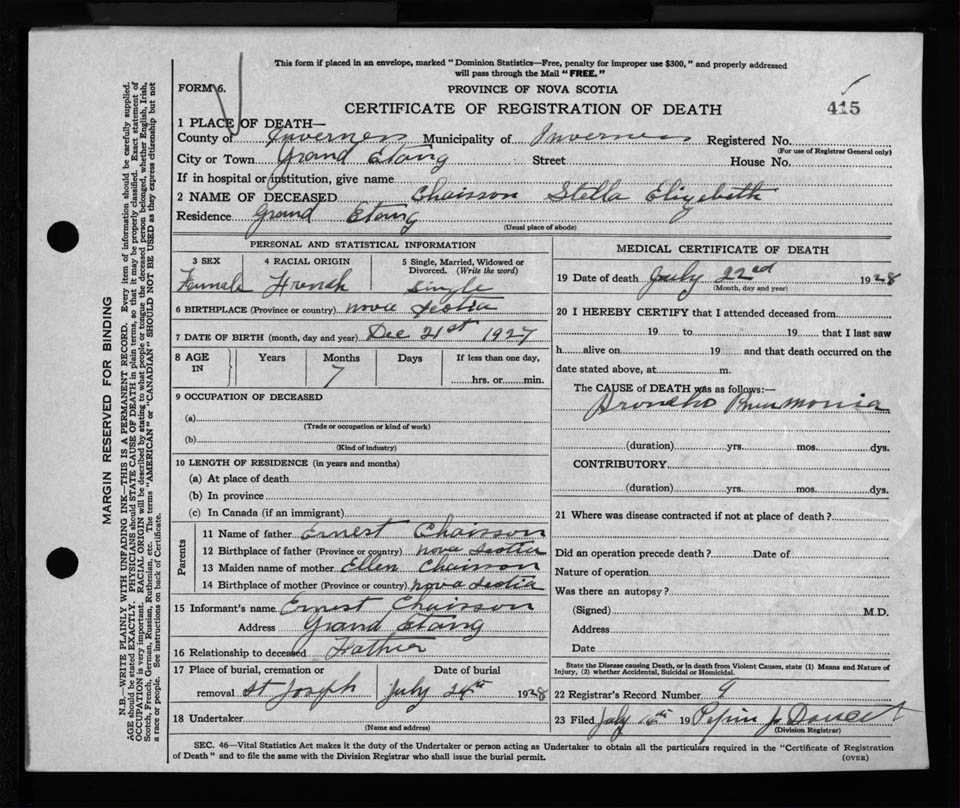 This form if placed in an envelope, marked "Dominion Statistics—Free, penalty for improper use $300," and properly addressed
will pass through the Mail "FREE."
FORM 6.
PROVINCE OF NOVA SCOTIA
CERTIFICATE OF REGISTRATION OF DEATH
415
1 PLACE OF DEATH—
County of Inverness Municipality of Inverness Registered No.
(For use of Registrar General only)
City or Town Grand Etang Street House No.
If in hospital or institution, give name
2 NAME OF DECEASED Chaisson Stella Elizabeth
Residence Grand Etang
(Usual place of abode)
PERSONAL AND STATISTICAL INFORMATION
3 SEX 4 RACIAL ORIGIN 5 Single, Married, Widowed or
Divorced. (Write the word)
Female French Single
6 BIRTHPLACE (Province or country) Nova Scotia
7 DATE OF BIRTH (month, day and year) Dec 21st 1927
8 AGE IN Years Months Days If less than one day,
7 hrs. or min.
9 OCCUPATION OF DECEASED
(a)
(Trade or occupation or kind of work)
(b)
(Kind of industry)
10 LENGTH OF RESIDENCE (in years and months)
(a) At place of death
(b) In province
(c) In Canada (if an immigrant)
Parents
11 Name of father Ernest Chaisson
12 Birthplace of father (Province or country) Nova Scotia
13 Maiden name of mother Ellen Chaisson
14 Birthplace of mother (Province or country) Nova Scotia
15 Informant's name Ernest Chaisson
Address Grand Etang
16 Relationship to deceased Father
17 Place of burial, cremation or Date of burial
removal St Joseph July 24th 1928
18 Undertaker
(Name and address)
MEDICAL CERTIFICATE OF DEATH
19 Date of death July 22nd 1928
(Month, day and year)
20 I HEREBY CERTIFY that I attended deceased from
19 to 19 that I last saw
h alive on 19 and that death occurred on the
date stated above, at m.
The CAUSE of DEATH was as follows:—
Broncho Pneumonia
(duration) yrs. mos. dys.
CONTRIBUTORY
(duration) yrs. mos. dys.
21 Where was disease contracted if not at place of death?
Did an operation precede death? Date of
Nature of operation
Was there an autopsy?
(Signed) M.D.
Address
Date
State the Disease causing Death, or in death from Violent Causes, state (1) Means and Nature of
Injury, (2) whether Accidental, Suicidal or Homicidal.
22 Registrar's Record Number 9
23 Filed July 19 J Doucet
(Division Registrar)
SEC. 46—Vital Statistics Act makes it the duty of the Undertaker or person acting as Undertaker to obtain all the particulars required in the "Certificate of Registration
of Death" and to file the same with the Division Registrar who shall issue the burial permit.
(OVER)
MARGIN RESERVED FOR BINDING
N.B.—WRITE PLAINLY WITH UNFADING INK—THIS IS A PERMANENT RECORD. Every item of information should be carefully supplied.
AGE should be stated EXACTLY. PHYSICIANS should STATE CAUSE OF DEATH in plain terms, so that it may be properly classified. Exact statement of
OCCUPATION is very important. RACIAL ORIGIN will be described by stating to what people or tongue the deceased person belonged, whether English, Irish,
Scotch, French, German, Russian, Ruthenian, etc. The terms "AMERICAN" or "CANADIAN" SHOULD NOT BE USED as they express citizenship but not
a race or people. See instructions on back of Certificate.